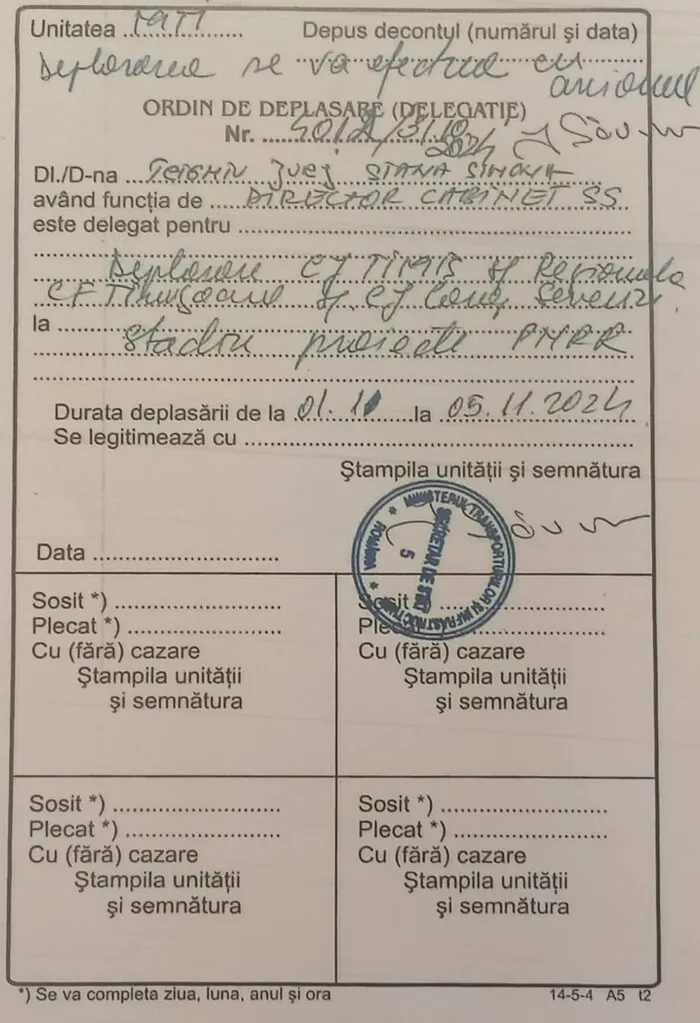 Unitatea ... MTI ...
Depus decontul (numărul şi data)
Deplasarea se va efectua cu
avionul
ORDIN DE DEPLASARE (DELEGAŢIE)
Nr. ... 31.10
2024
Dl./D-na ... STANA SIMONA
având funcţia de ... DIRECTOR CABINET SS
este delegat pentru ...
Deplasare CJ TIMIŞ şi Regionala
CF Timişoara şi CJ Severin
la ... stadiu proiecte PNRR
Durata deplasării de la 01.11 ... la 05.11.2024
Se legitimează cu ...
Ştampila unităţii şi semnătura
MINISTERUL TRANSPORTURILOR ŞI INFRASTRUCTURII
ROMÂNIA
SECRETAR DE STAT
5
Data ...
Sosit *) ...
Plecat *) ...
Cu (fără) cazare
Ştampila unităţii
şi semnătura
Sosit *) ...
Plecat *) ...
Cu (fără) cazare
Ştampila unităţii
şi semnătura
Sosit *) ...
Plecat *) ...
Cu (fără) cazare
Ştampila unităţii
şi semnătura
Sosit *) ...
Plecat *) ...
Cu (fără) cazare
Ştampila unităţii
şi semnătura
*) Se va completa ziua, luna, anul şi ora
14-5-4 A5 t2